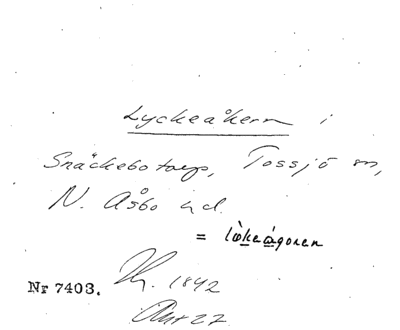 Lyckeåkern i
Snäckebotorp, Tossjö sn,
N. Åsbo hd.
= lökeågoren
Nr 7403. 1842
27